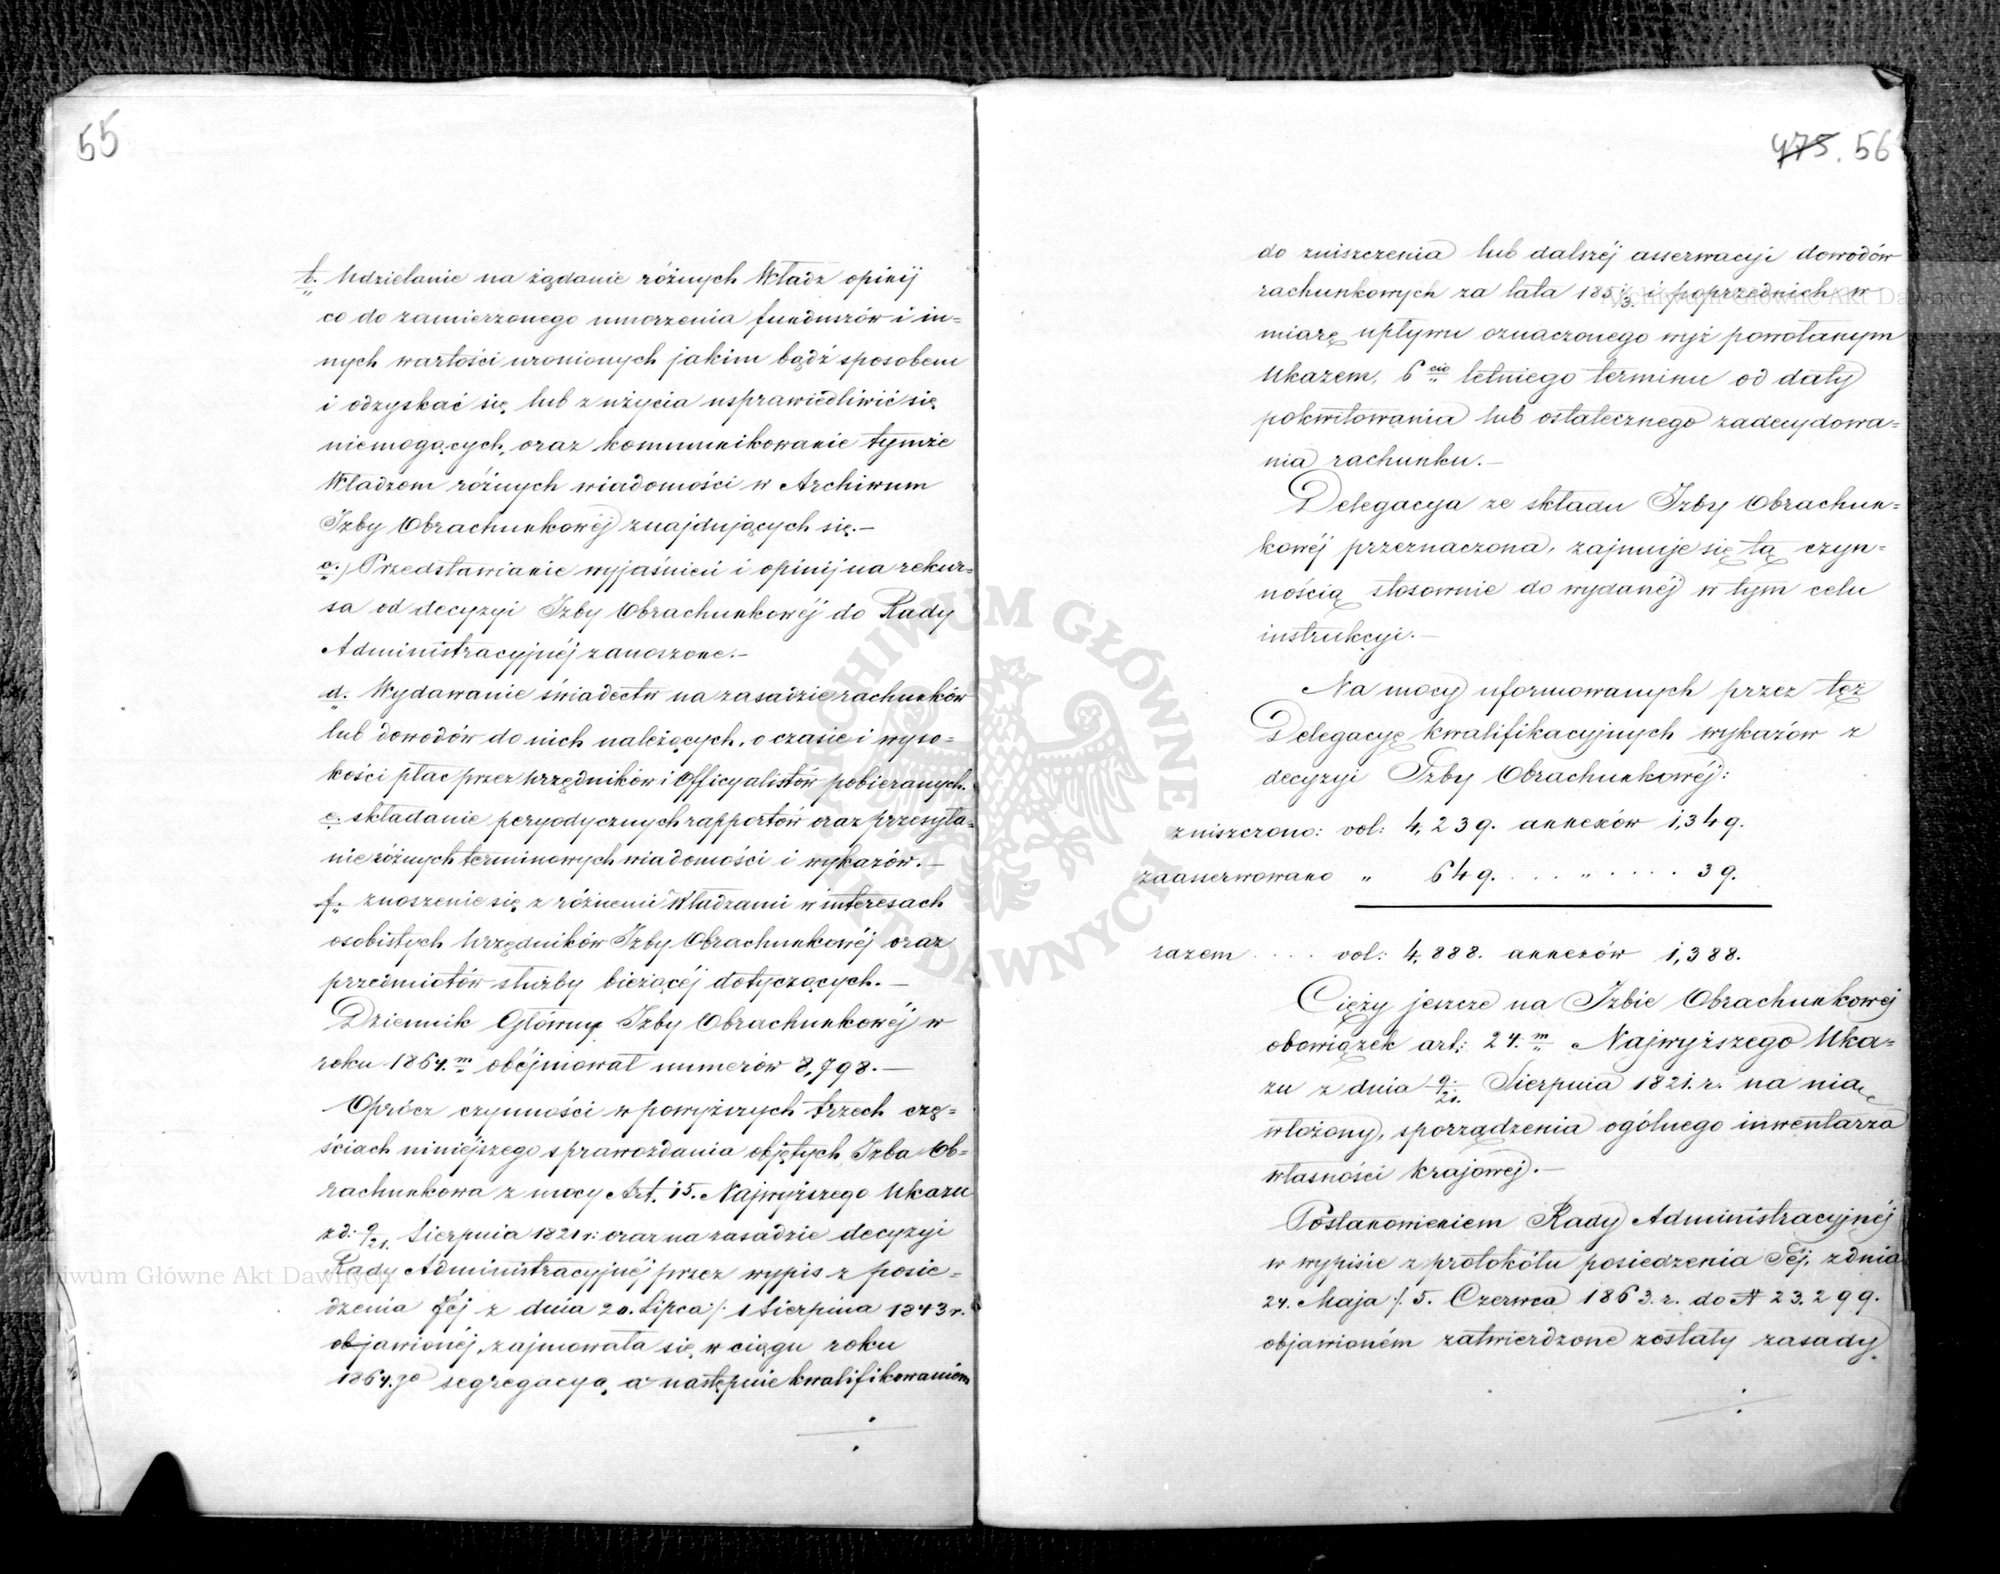 55
b. Udzielanie na żądanie różnych Władz opinij
co do zamierzonego umorzenia funduszów i in=
nych wartości uronionych jakim bądź sposobem
i odzyskać się, lub z użycia usprawiedliwić się
niemogących, oraz kommunikowanie tymże
Władzom różnych wiadomości w Archiwum
Izby Obrachunkowéj znajdujących się.—
c.) Przedstawianie wyjaśnień i opinij na rekur=
sa od decyzyi Izby Obrachunkowéj do Rady
Administracyjnéj zanoszone.—
d. Wydawanie świadectw na zasadzie rachunków
lub dowodów do nich należących, o czasie i wyso=
kości płac przez Urzędników i Officyalistów pobieranych.
e. składanie peryodycznych rapportów oraz przesyła=
nie różnych terminowych wiadomości i wykazów.—
f. znoszenie się z różnemi Władzami w interesach
osobistych Urzędników Izby Obrachunkowéj oraz
przedmiotów służby bieżącéj dotyczących.—
Dziennik Główny Izby Obrachunkowéj w
roku 1864.m obéjmował numerów 8,798.—
Oprócz czynności w powyższych trzech czę=
ściach niniejszego sprawozdania objętych, Izba Ob=
rachunkowa z mocy Art. 15. Najwyższego Ukazu
z d: 9/21. Sierpnia 1821 r: oraz na zasadzie decyzyi
Rady Administracyjnéj przez wypis z posie=
dzenia Jéj z dnia 20. Lipca /. 1 Sierpnia 1843 r.
objawionéj, zajmowała się, w ciągu roku
1864.go segregacyą, a następnie kwalifikowaniem
475. 56
do zniszczenia lub dalszéj asserwacyi dowodów
rachunkowych za lata 185 2/3. i poprzednich w
miarę upływu oznaczonego wyż powołanym
Ukazem, 6cio letniego terminu od daty
pokwitowania lub ostatecznego zadecydowa=
nia rachunku.—
Delegacya ze składu Izby Obrachun=
kowéj przeznaczona, zajmuje się tą czyn=
nością stosownie do wydanéj w tym celu
instrukcyi.—
Na mocy uformowanych przez też
Delegacyę kwalifikacyjnych wykazów z
decyzyi Izby Obrachunkowéj:
zniszczono: vol: 4,239. annexów 1,349.
zaasserwowano „ 649. . . . „ . . . . . 39.
razem . . . . vol: 4,888. annexów 1,388.
Cięży jeszcze na Izbie Obrachunkowej
obowiązek art: 24.m Najwyższego Uka=
zu z dnia 9/21. Sierpnia 1821. r. na nią
włożony, sporządzenia ogólnego inwentarza
własności krajowej.—
Postanowieniem Rady Administracyjnéj
w wypisie z protokółu posiedzenia Jéj, z dnia
24. Maja /. 5. Czerwca 1863. r. do N 23.299.
objawioném zatwierdzone zostały zasady
ARCHIWUM GŁÓWNE
AKT DAWNYCH
Archiwum Główne Akt Dawnych
Archiwum Główne Akt Dawnych